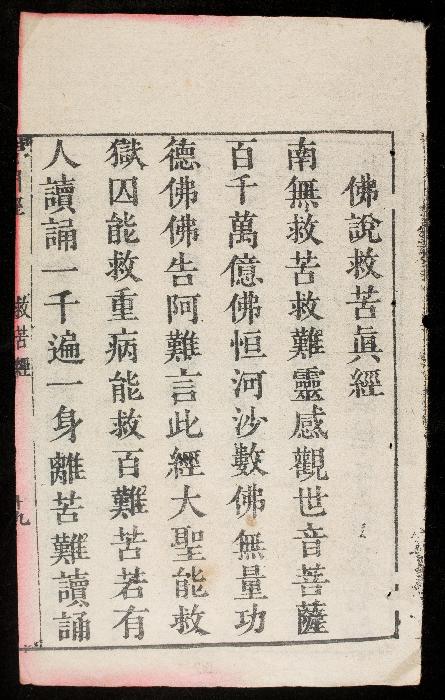 佛說救苦眞經
南無救苦救難靈感觀世音菩薩
百千萬億佛恒河沙數佛無量功
德佛佛告阿難言此經大聖能救
獄囚能救重病能救百難苦若有
人讀誦一千遍一身離苦難讀誦
救苦經
十九